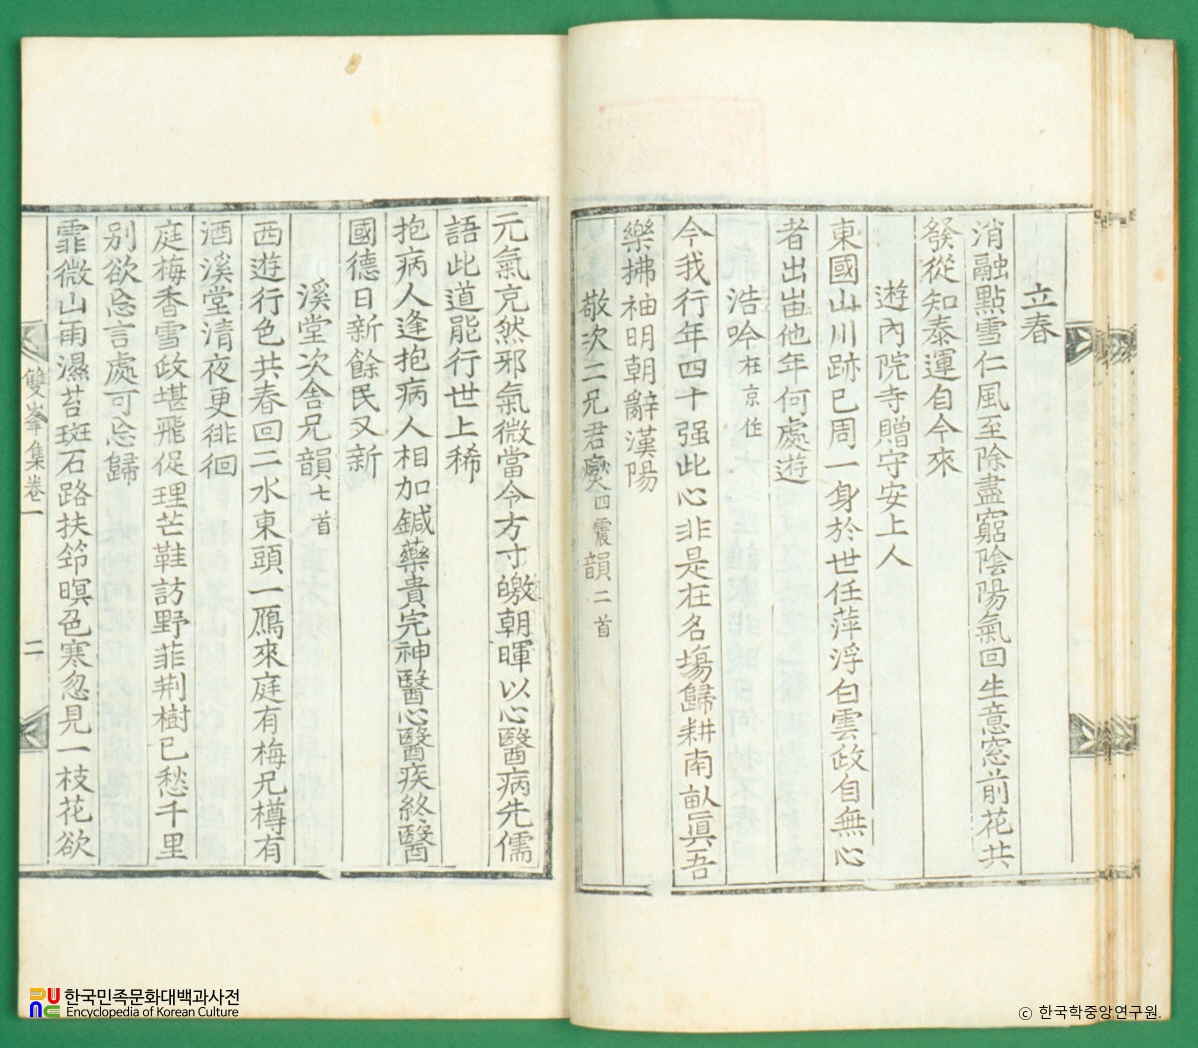 立春
消融點雪仁風至除盡窮陰陽氣回生意窓前花共
發從知泰運自今來
遊內院寺贈守安上人
東國山川跡已周一身於世任萍浮白雲政自無心
者出峀他年何處遊
浩吟在京作
今我行年四十强此心非是在名塲歸耕南畒眞吾
樂拂袖明朝辭漢陽
敬次二兄君燮四震韻二首
元氣充然邪氣微當令方寸皦朝暉以心醫病先儒
語此道能行世上稀
抱病人逢抱病人相加鍼藥貴完神醫心醫疾終醫
國德日新餘民又新
溪堂次舍兄韻七首
西遊行色共春回二水東頭一鴈來庭有梅兄樽有
酒溪堂清夜更徘徊
庭梅香雪政堪飛促理芒鞋訪野菲荆樹已愁千里
別欲忘言處可忘歸
霏微山雨濕苔斑石路扶筇暝色寒忽見一枝花欲
雙峯集卷一
二
한국민족문화대백과사전
Encyclopedia of Korean Culture
ⓒ 한국학중앙연구원.